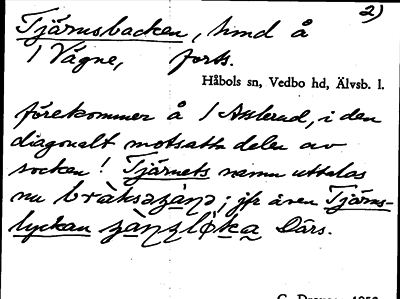 2)
Tjärnsbacken, hmd å
1 Vågne, forts.
Håbols sn, Vedbo hd, Älvsb. l.
förekommer å 1 Asslerud, i den
diagonalt motsatta delen av
socken! Tjärnets namn uttalas
nu ; jfr även Tjärns-
lyckan Därs.